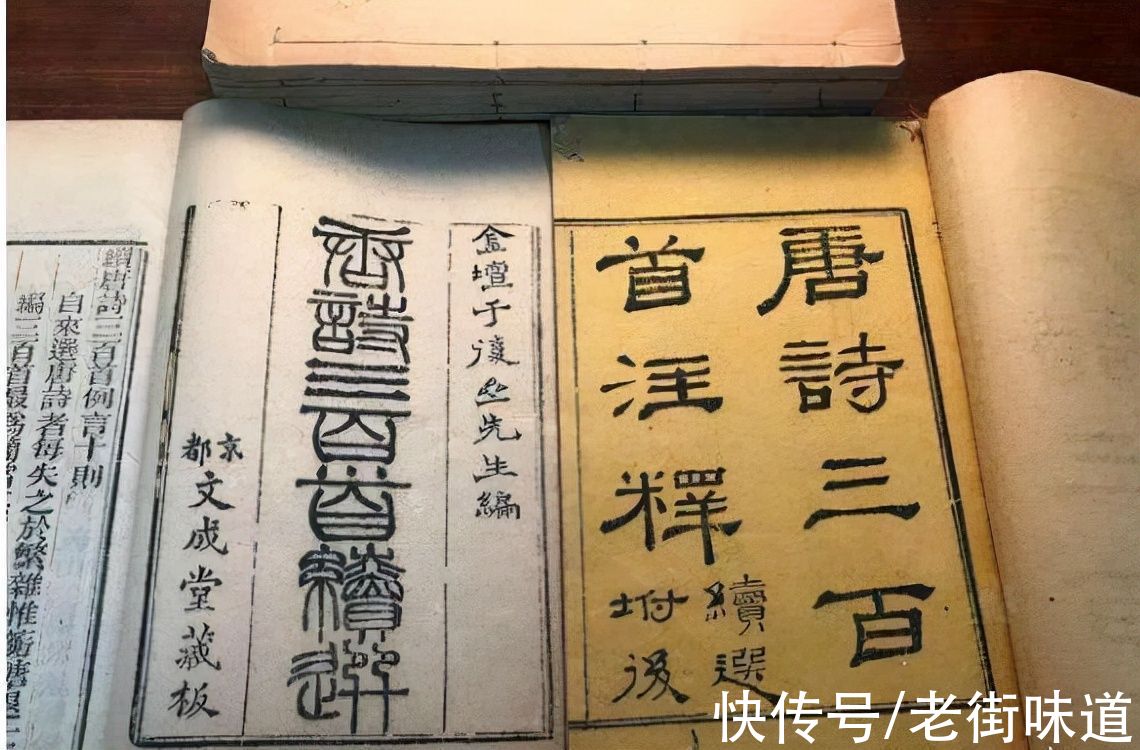 唐詩三百
首注釋
續選
坿後
金壇于慶元先生編
唐詩三百首續選
京都
文成堂藏板
續唐詩三百首例言十則
自來選唐詩者每失之於繁雜惟蘅塘退士
編三百首最爲簡當
快传号/老街味道